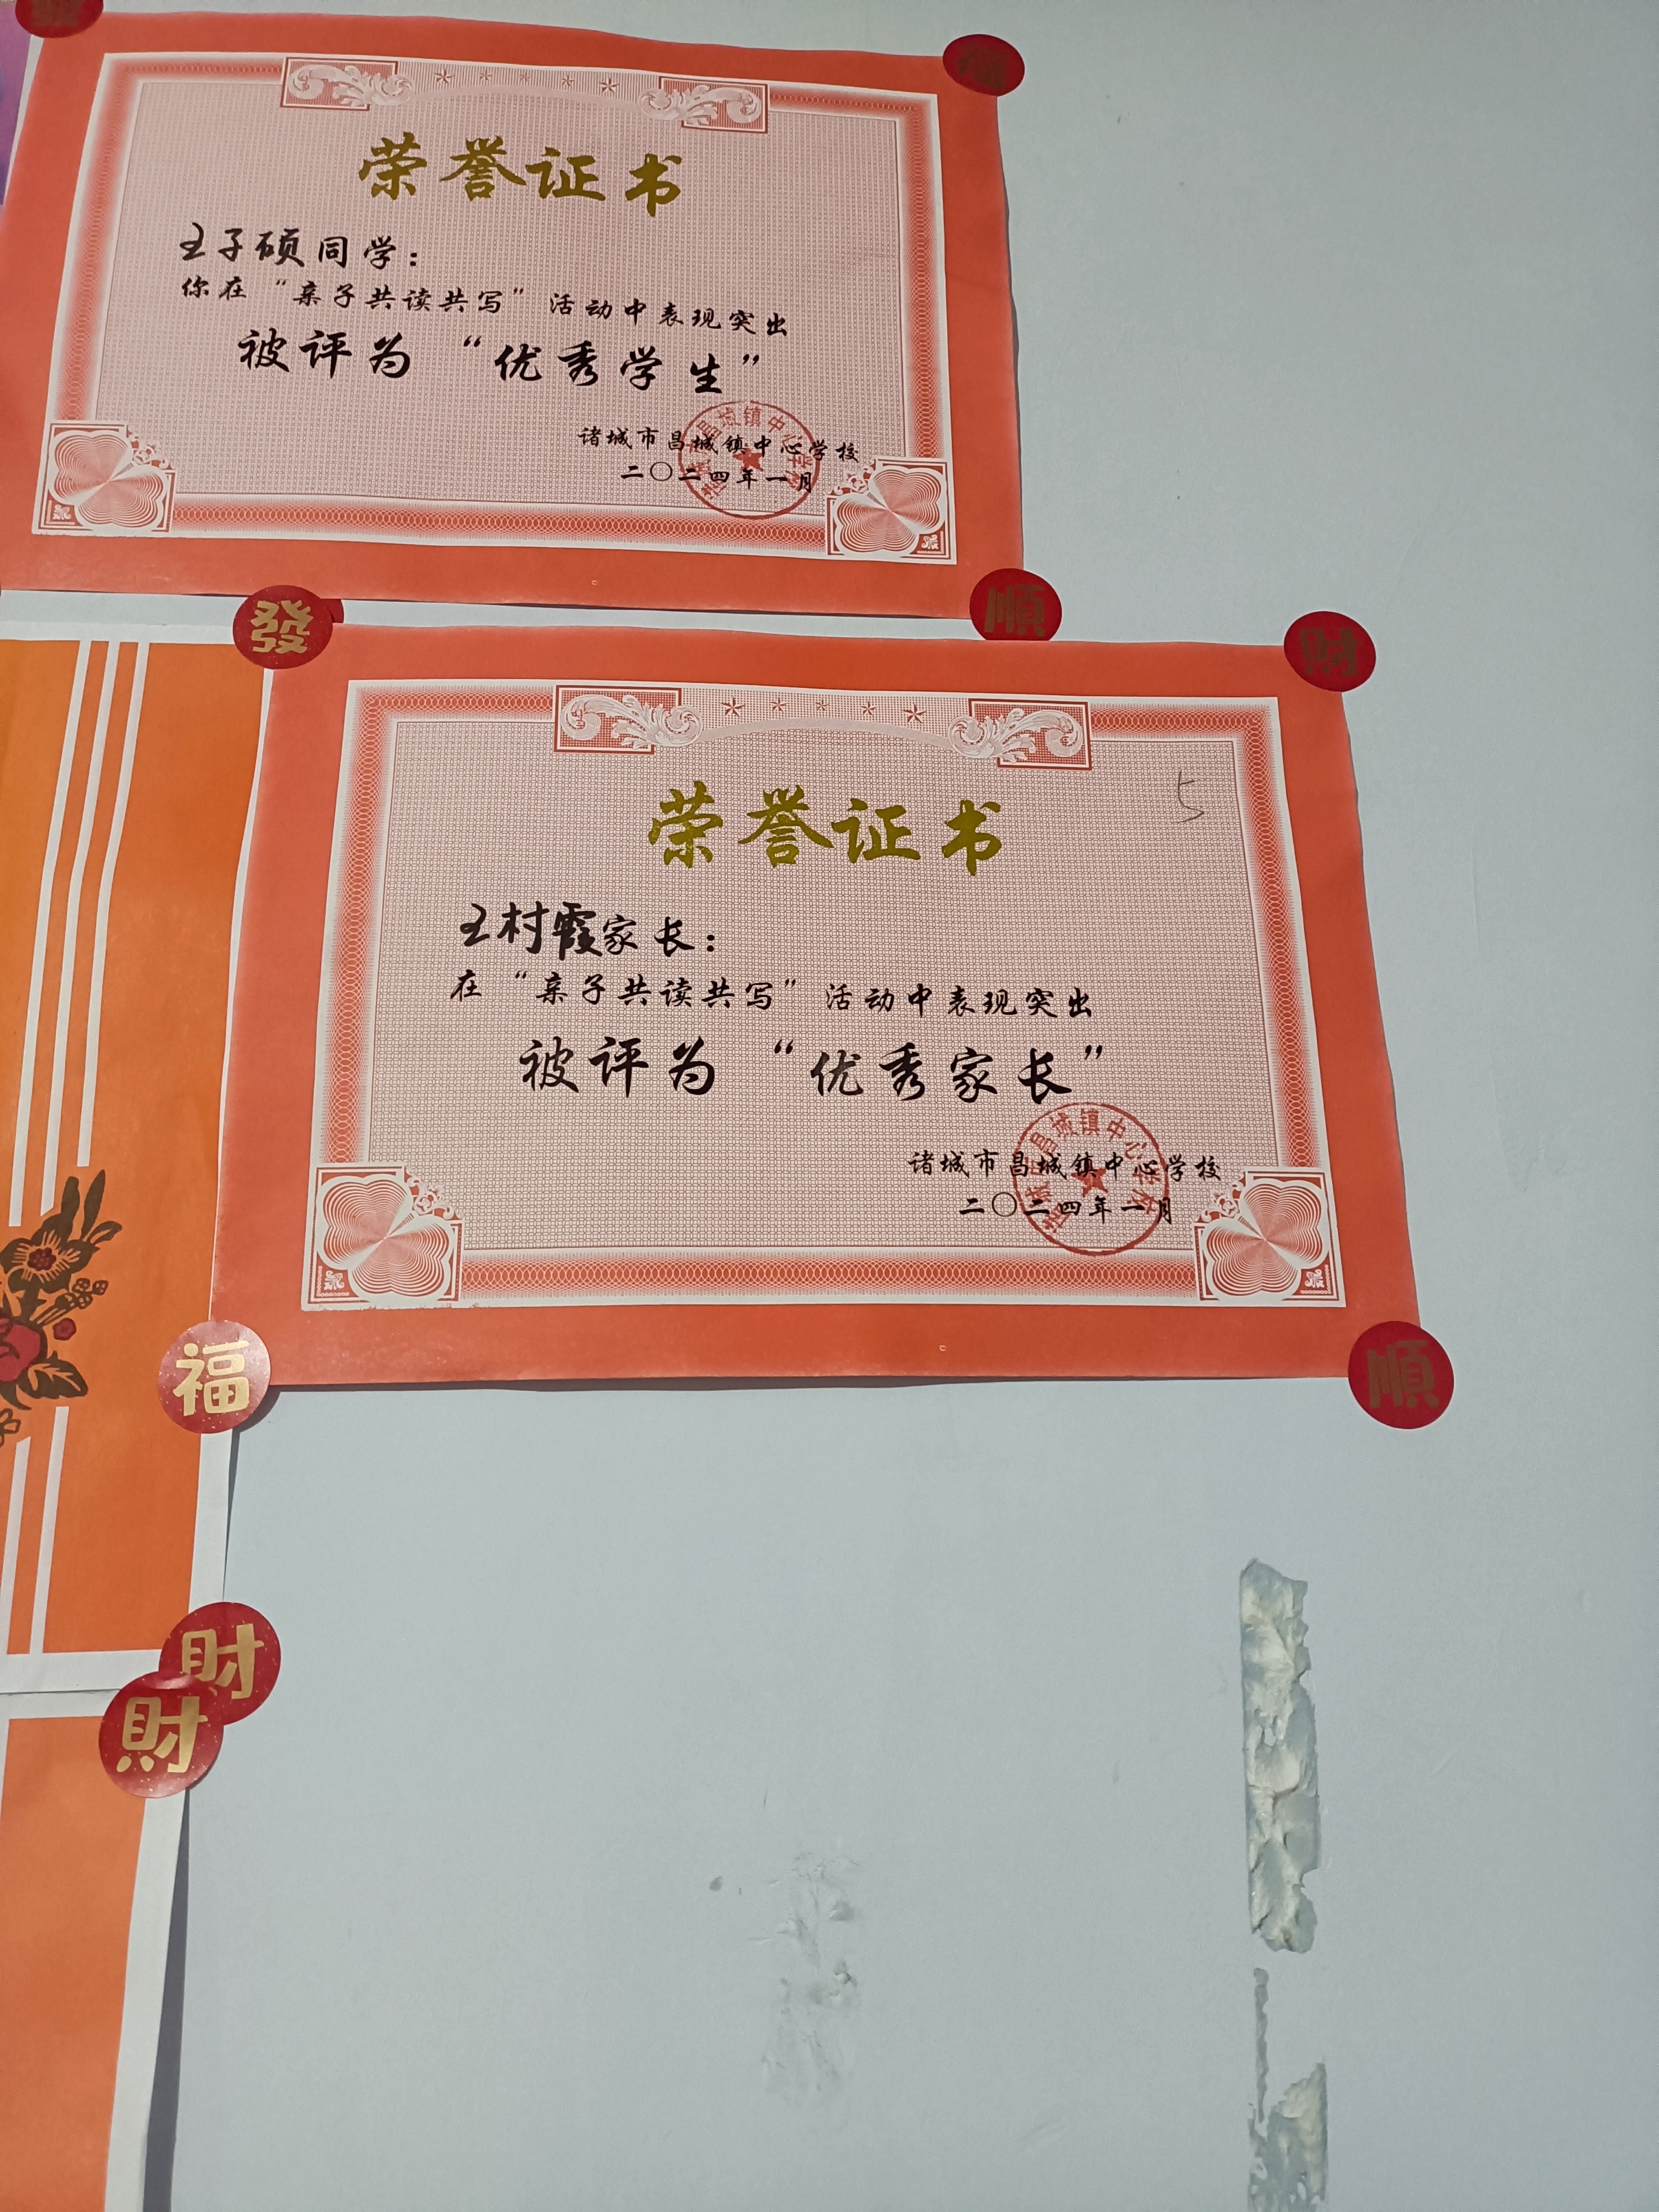 福
荣誉证书
王子硕同学：
你在“亲子共读共写”活动中表现突出
被评为“优秀学生”
诸城市昌城镇中心学校
二〇二四年一月
發
順
財
荣誉证书
5
王村霞家长：
在“亲子共读共写”活动中表现突出
被评为“优秀家长”
诸城市昌城镇中心学校
二〇二四年一月
福
順
財
財